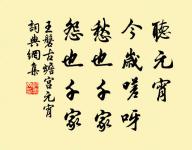 聽元宵
今歲嗟呀
愁也千家
怨也千家
王磐古蟾宮元宵
詞典網集